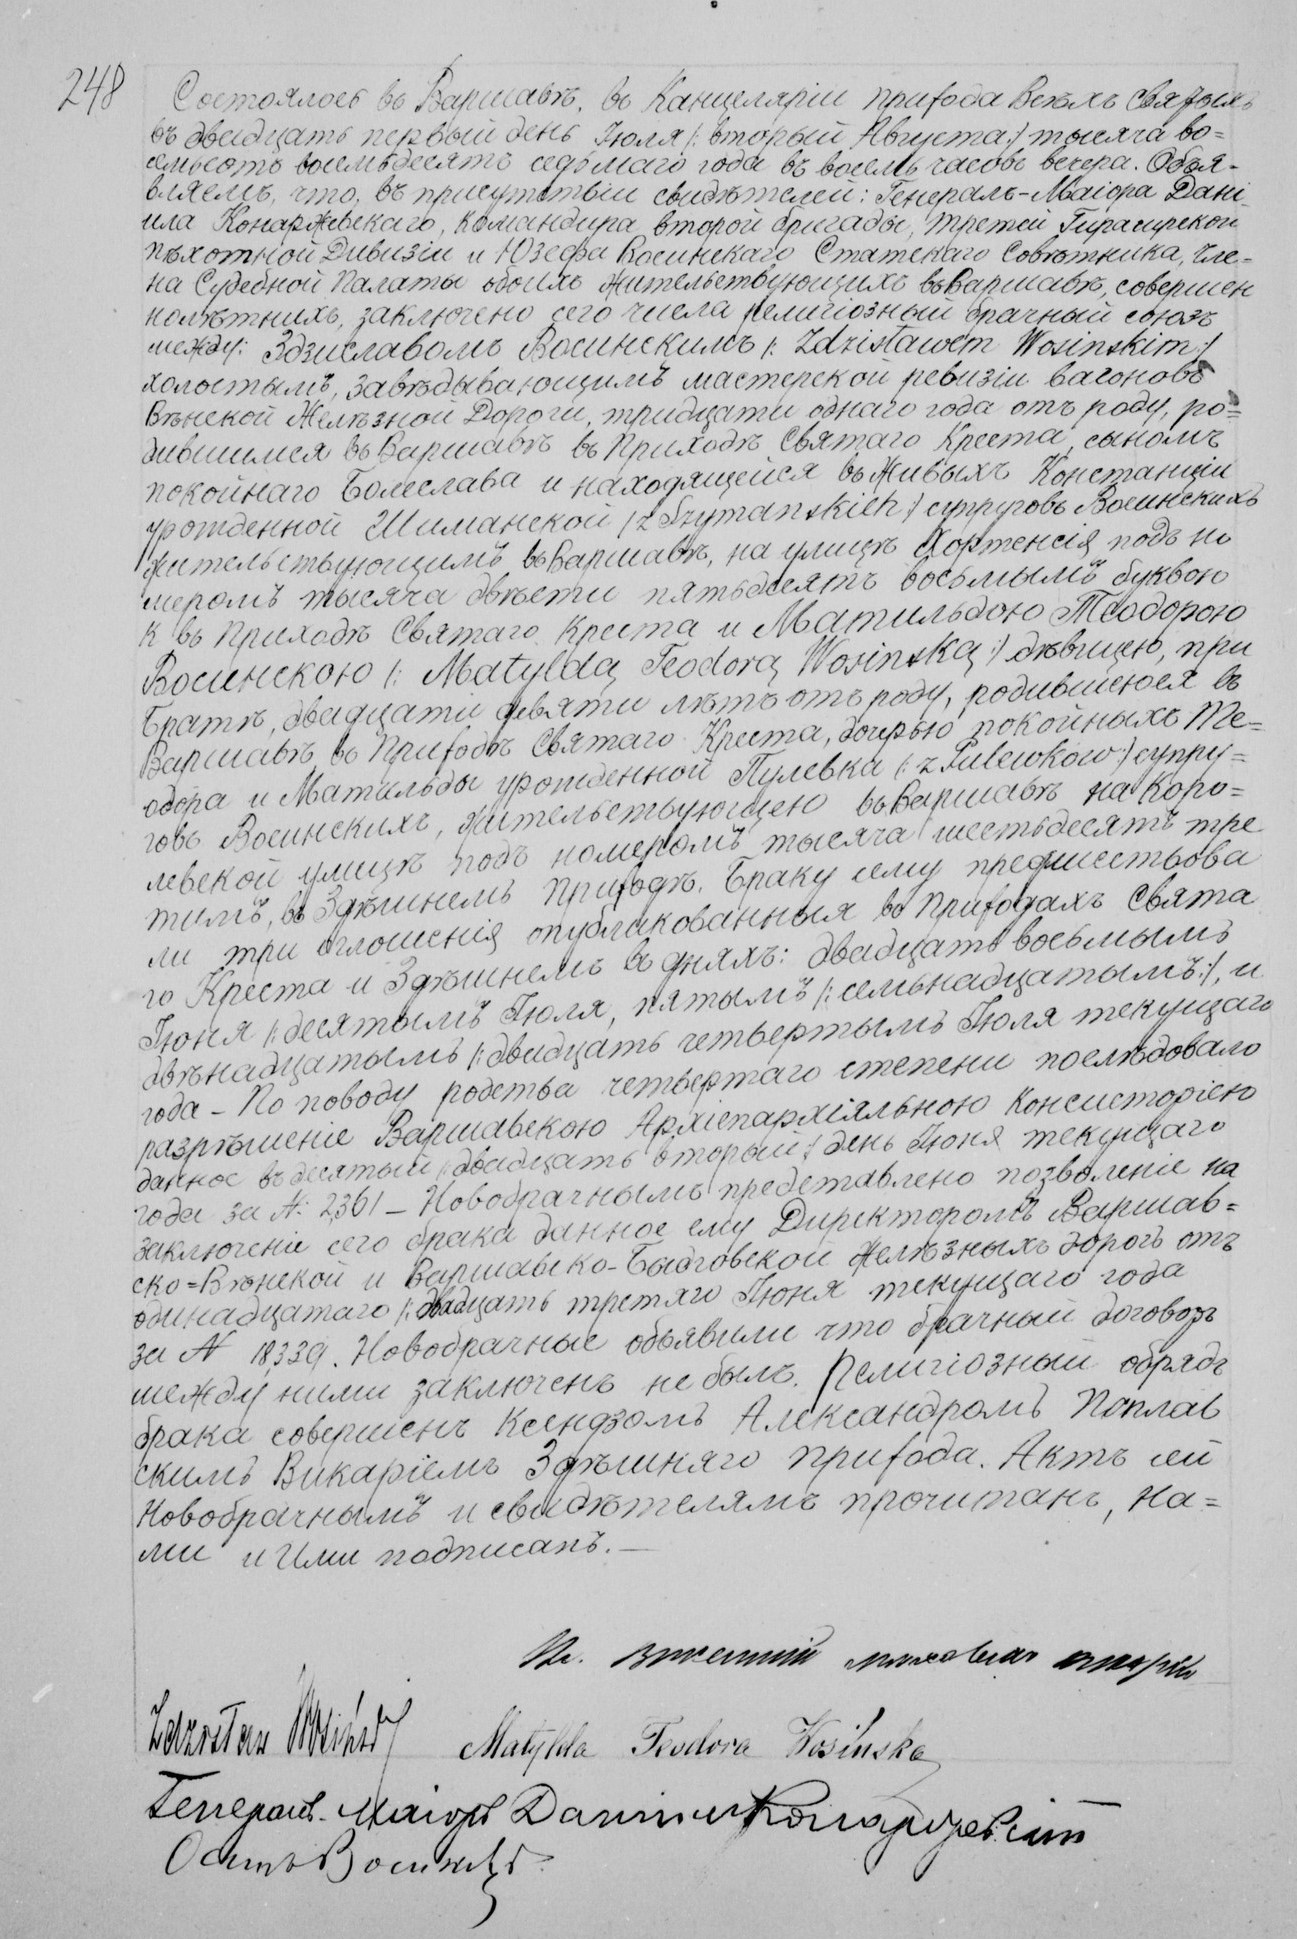 248
Состоялось въ Варшавѣ, въ Канцеляріи прихода Всѣхъ Святыхъ
въ двадцать первый день Іюля /: вторый Августа :/ тысяча во=
семьсотъ восемьдесятъ седьмаго года въ восемь часовъ вечера. Объя-
вляемъ, что, въ присутствіи свидѣтелей: Генералъ-Маіора Дані
ила Конаржевскаго, Командира второй бригады, третей Гвардейской
пѣхотной Дивизіи и Юзефа Восинскаго Статскаго Совѣтника, Чле=
на Судебной Палаты обоихъ жительствующихъ въ Варшавѣ, совершен
нолѣтнихъ, заключено сего числа религіозный брачный союзъ
между: Здзиславомъ Восинскимъ /: Zdzisławem Wosinskim :/
холостымъ, завѣдывающимъ мастерской ревизіи вагоновъ
Вѣнской Желѣзной Дороги, тридцати однаго года отъ роду, ро=
дившимся въ Варшавѣ въ Приходѣ Святаго Креста, сыномъ
покойнаго Болеслава и находящейся въ живыхъ Констанціи
урожденной Шиманской /: z Szymanskich :/ супруговъ Восинскихъ
жительствующимъ въ Варшавѣ, на улицѣ Хортенсія подъ но
меромъ тысяча двѣсти пятьдесятъ восьмымъ буквою
К въ Приходѣ Святаго Креста и Матильдою Теодорою
Восинскою /: Matyldą Teodorą Wosinską :/ дѣвицею, при
Братѣ, двадцати девяти лѣтъ отъ роду, родившеюся въ
Варшавѣ въ Приходѣ Святаго Креста, дочерью покойныхъ Те=
одора и Матильды урожденной Пулевка /: z Pulewków :/ супру=
говъ Восинскихъ, жительствующею въ Варшавѣ на Коро=
левской улицѣ подъ номеромъ тысяча шестьдесятъ тре
тимъ, въ Здѣшнемъ Приходѣ. Браку сему предшествова
ли три оглошенія опубликованныя въ Приходахъ Свята
го Креста и Здѣшнемъ въ дняхъ: двадцать восьмымъ
Іюня /: десятымъ Іюля, пятымъ /: семьнадцатымъ :/, и
двѣнадцатымъ /: двадцать четвертымъ Іюля текущаго
года - По поводу родства четвертаго степени послѣдовало
разрѣшеніе Варшавскою Архіепархіяльною Консисторіею
данное въ десятый /: двадцать вторый :/ день Іюня текущаго
года за №: 2,361 - Новобрачнымъ представлено позволеніе на
заключеніе сего брака данное ему Директоромъ Варшав=
ско=Вѣнской и Варшавско-Быдговской Желѣзныхъ дорогъ отъ
одинадцатаго /: двадцать третяго Іюня текущаго года
за № 18,339. Новобрачные объявили что брачный договоръ
между ними заключенъ не былъ. Религіозный обрядъ
брака совершенъ Ксендзомъ Александромъ Поплав
скимъ Викаріемъ Здѣшняго прихода. Актъ сей
Новобрачнымъ и свидѣтелямъ прочитанъ, На=
ми и Ими подписанъ. —
Zdzisław Wosiński Matylda Teodora Wosińska
Генералъ-Маіоръ Даніилъ Конаржевскій